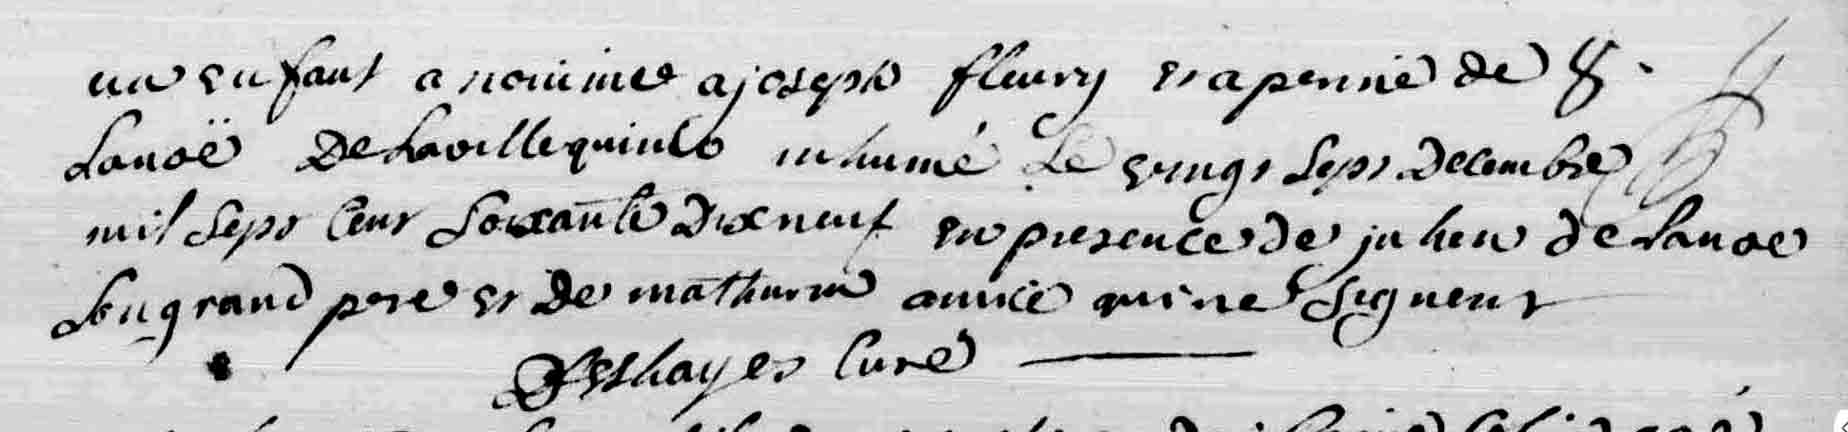 un enfant anonime a joseph fleury et a perrine de
Lanoë De la ville quinio inhumé Le vingt Sept Decembre
mil Sept Cent Soixante Dix neuf en presence de julien de Lanoe
Son grand pere et De mathurin annicé qui ne Signent
Deshayes Curé